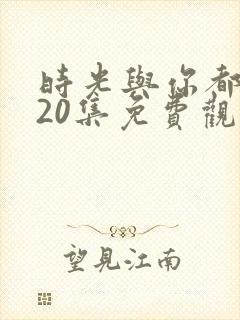 時光與你都
20集免費觀
望見江南